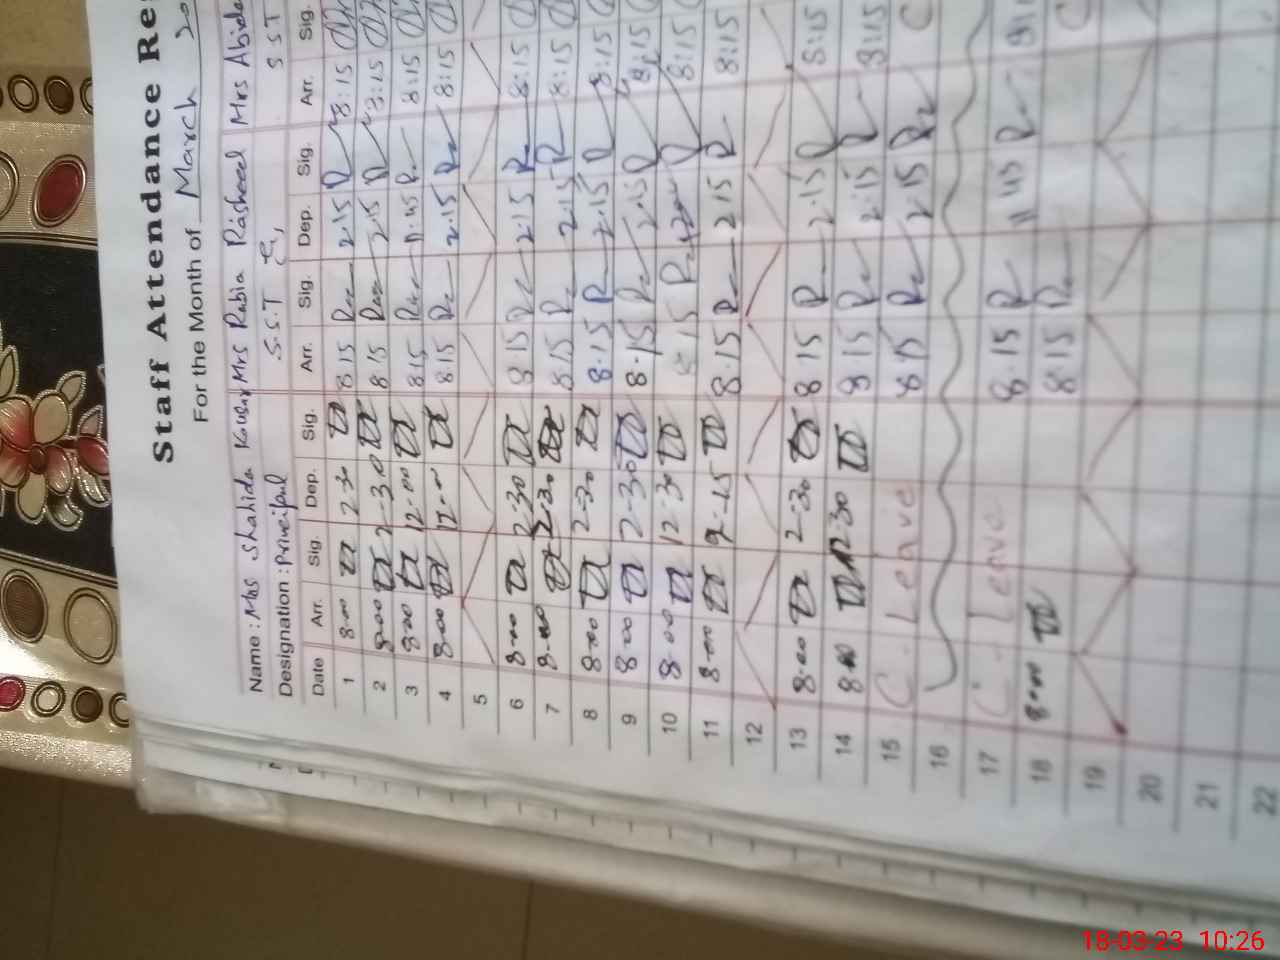 Staff Attendance Re
For the Month of March 20
Name: Mrs Shahida Kousar Mrs Rabia Rasheed Mrs Abida
Designation: Principal S.S.T S S T
Date Arr. Sig. Dep. Sig. Arr. Sig. Dep. Sig. Arr. Sig.
1 8-00 2-30 8 15 2:15 8:15
2 8-00 2-30 8 15 2:15 8:15
3 8-00 12-00 8 15 11:45 8:15
4 8-00 12-00 8 15 2:15 8:15
5
6 8-00 2-30 8 15 2:15 8:15
7 8-00 2-30 8 15 2:15 8:15
8 8-00 2-30 8.15 2:15 8:15
9 8-00 2-30 8.15 2:15 8:15
10 8-00 12-30 8.15 8:15
11 8-00 9-15 8.15 2.15 8:15
12
13 8-00 2-30 8 15 2.15 8:15
14 8-00 12-30 8 15 2:15 8:15
15 C - Leave 8.15 2.15 C
16
17 C - Leave 8.15 11:45
18 8-00 8.15 C
19
20
21
22
18-03-23 10:26